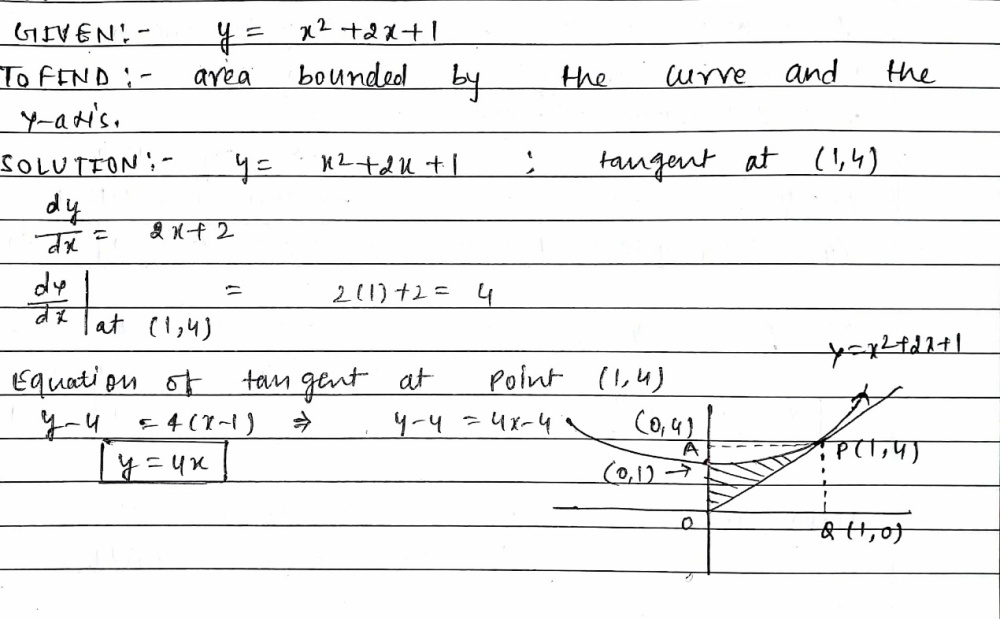 GIVEN:- y = x² + 2x + 1
TO FIND :- area bounded by the curve and the
y-axis.
SOLUTION:- y = x² + 2x + 1 ; tangent at (1,4)
dy/dx = 2x + 2
dy/dx | at (1,4) = 2(1) + 2 = 4
y = x² + 2x + 1
Equation of tangent at point (1,4)
y-4 = 4(x-1) ⇒ y-4 = 4x-4
y = 4x
(0,4)
A
P(1,4)
(0,1) →
O
Q(1,0)